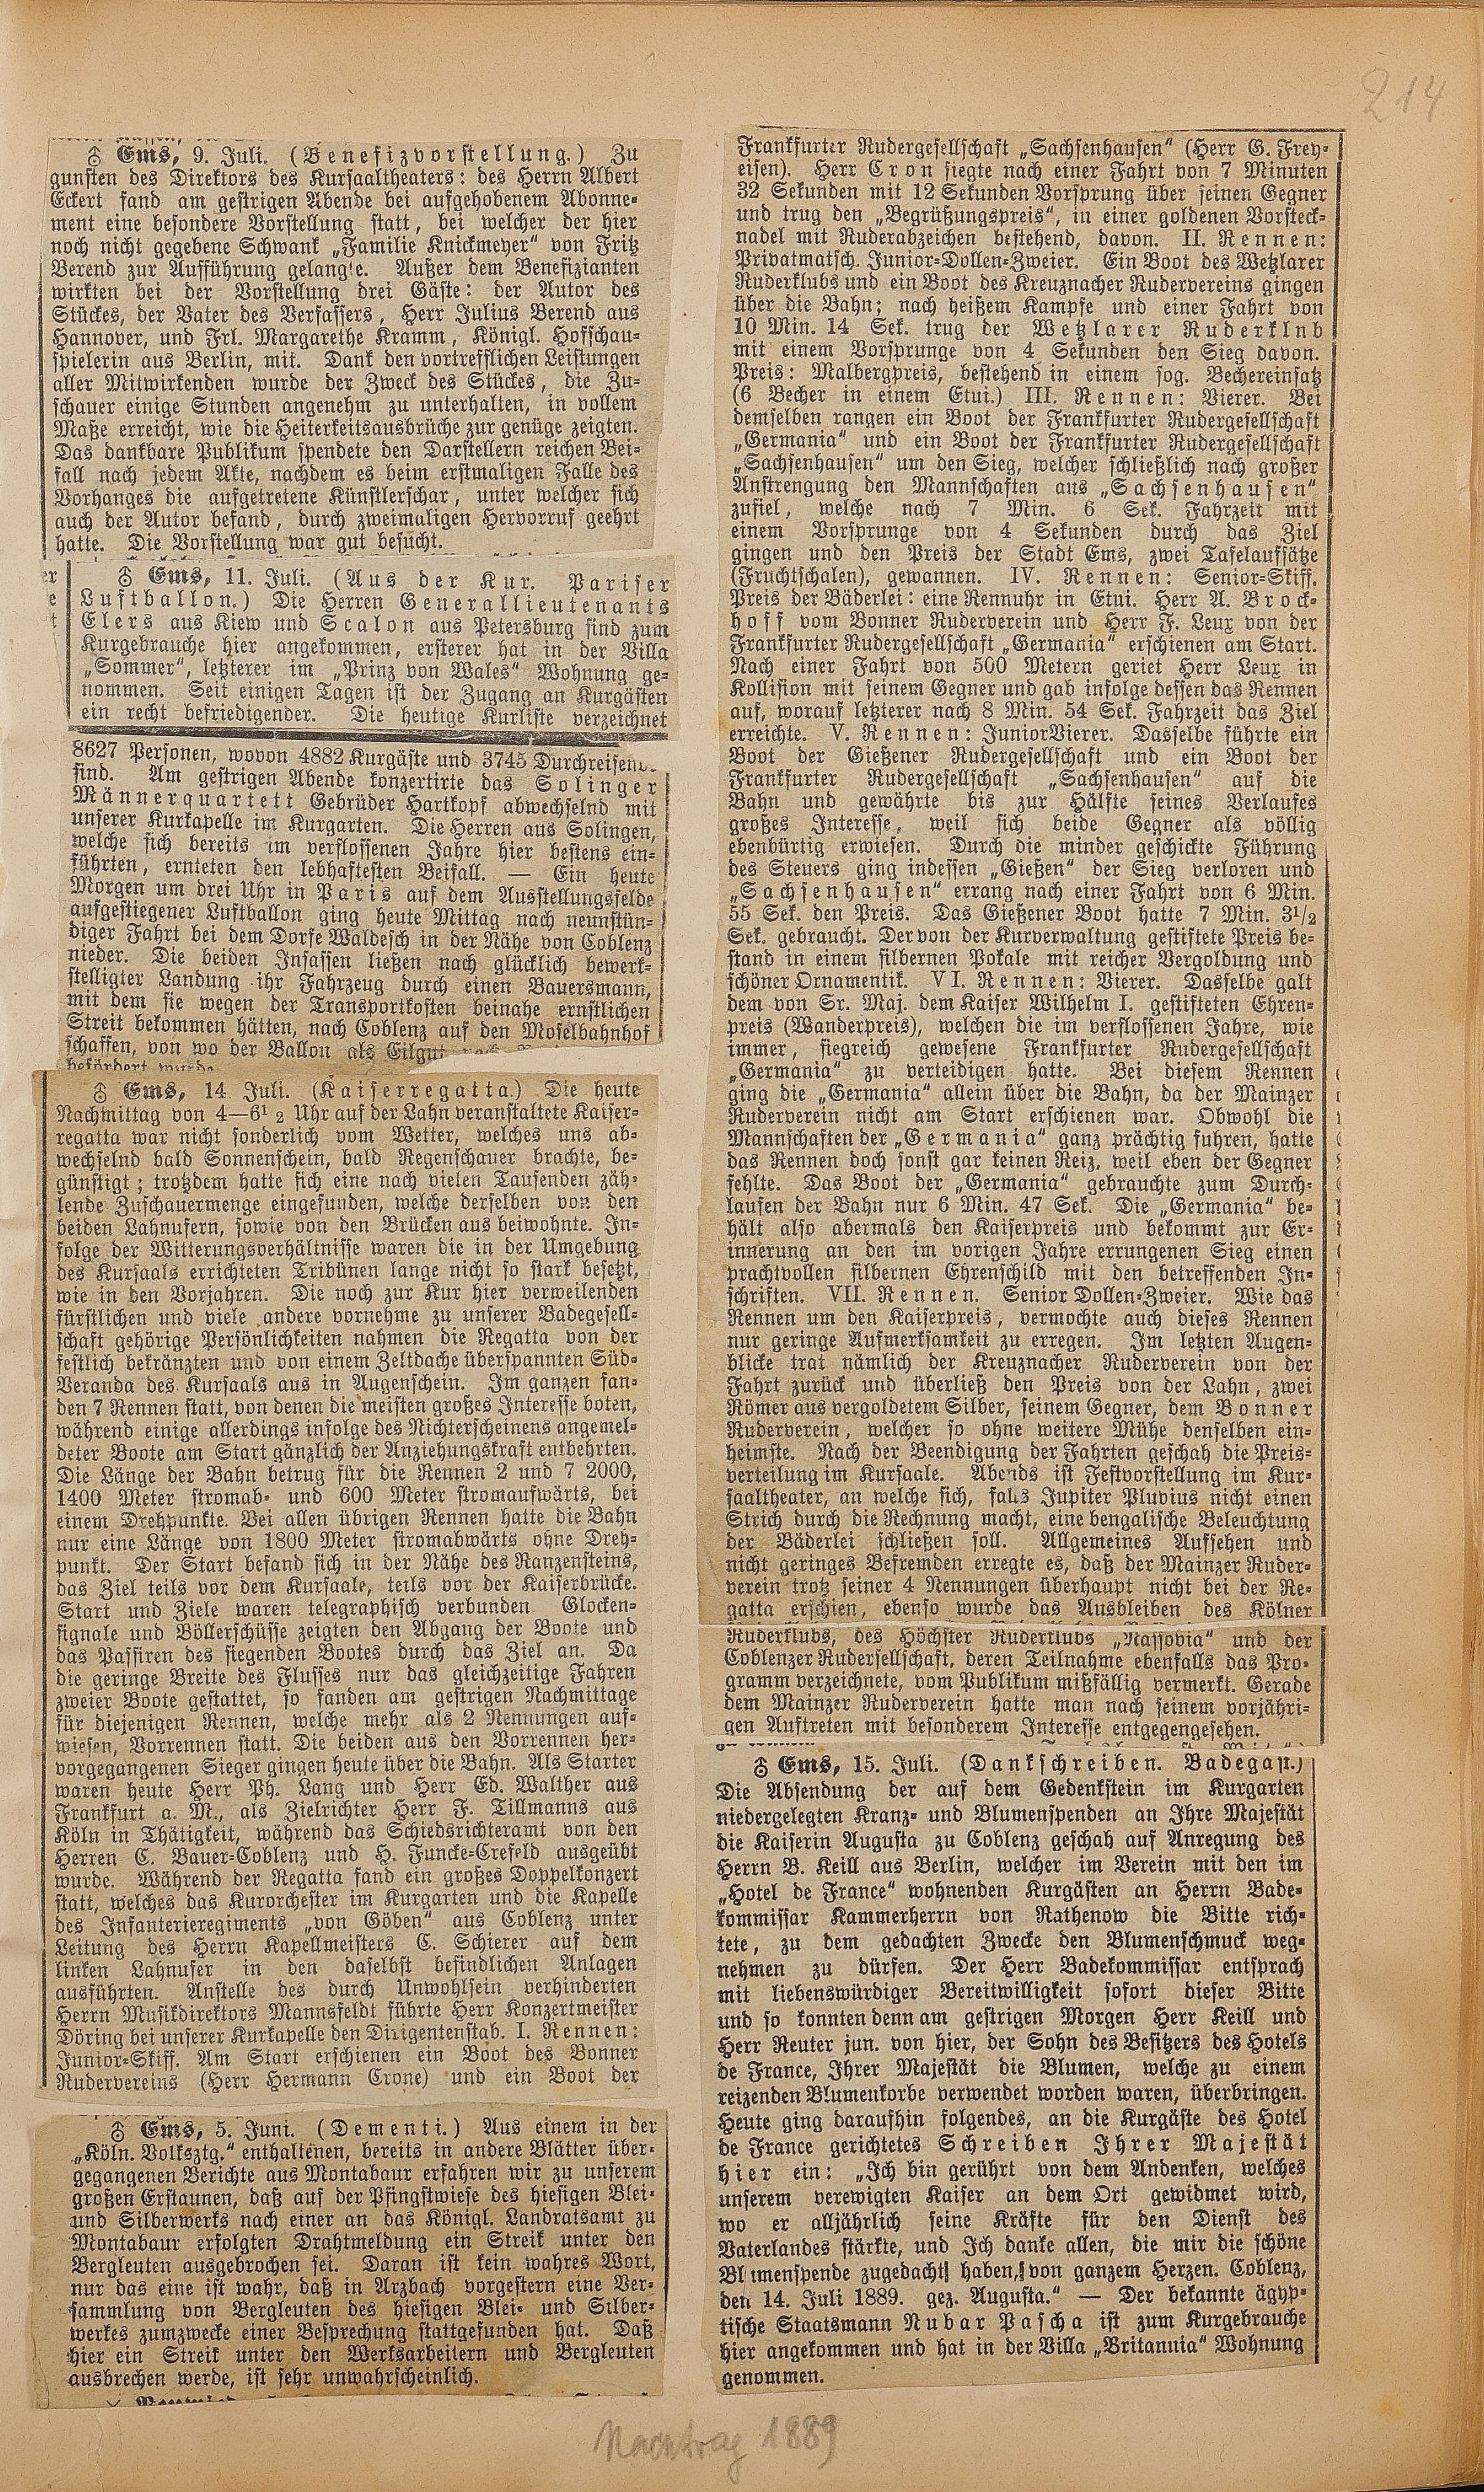 214
♁ Ems, 9. Juli. (Benefizvorstellung.) Zu
gunsten des Direktors des Kursaaltheaters: des Herrn Albert
Eckert fand am gestrigen Abende bei aufgehobenem Abonne-
ment eine besondere Vorstellung statt, bei welcher der hier
noch nicht gegebene Schwank „Familie Knickmeyer“ von Fritz
Berend zur Aufführung gelangte. Außer dem Benefizianten
wirkten bei der Vorstellung drei Gäste: der Autor des
Stückes, der Vater des Verfassers, Herr Julius Berend aus
Hannover, und Frl. Margarethe Kramm, Königl. Hofschau-
spielerin aus Berlin, mit. Dank den vortrefflichen Leistungen
aller Mitwirkenden wurde der Zweck des Stückes, die Zu-
schauer einige Stunden angenehm zu unterhalten, in vollem
Maße erreicht, wie die Heiterkeitsausbrüche zur genüge zeigten.
Das dankbare Publikum spendete den Darstellern reichen Bei-
fall nach jedem Akte, nachdem es beim erstmaligen Falle des
Vorhanges die aufgetretene Künstlerschar, unter welcher sich
auch der Autor befand, durch zweimaligen Hervorruf geehrt
hatte. Die Vorstellung war gut besucht.
♁ Ems, 11. Juli. (Aus der Kur. Pariser
Luftballon.) Die Herren Generallieutenants
Elers aus Kiew und Scalon aus Petersburg sind zum
Kurgebrauche hier angekommen, ersterer hat in der Villa
„Sommer“, letzterer im „Prinz von Wales“ Wohnung ge-
nommen. Seit einigen Tagen ist der Zugang an Kurgästen
ein recht befriedigender. Die heutige Kurliste verzeichnet
8627 Personen, wovon 4882 Kurgäste und 3745 Durchreisende
sind. Am gestrigen Abende konzertirte das Solinger
Männerquartett Gebrüder Hartkopf abwechselnd mit
unserer Kurkapelle im Kurgarten. Die Herren aus Solingen,
welche sich bereits im verflossenen Jahre hier bestens ein-
führten, ernteten den lebhaftesten Beifall. — Ein heute
Morgen um drei Uhr in Paris auf dem Ausstellungsfelde
aufgestiegener Luftballon ging heute Mittag nach neunstün-
diger Fahrt bei dem Dorfe Waldesch in der Nähe von Coblenz
nieder. Die beiden Insassen ließen nach glücklich bewerk-
stelligter Landung ihr Fahrzeug durch einen Bauersmann,
mit dem sie wegen der Transportkosten beinahe ernstlichen
Streit bekommen hätten, nach Coblenz auf den Moselbahnhof
schaffen, von wo der Ballon als Eilgut
befördert wurde
♁ Ems, 14 Juli. (Kaiserregatta.) Die heute
Nachmittag von 4—6 1/2 Uhr auf der Lahn veranstaltete Kaiser-
regatta war nicht sonderlich vom Wetter, welches uns ab-
wechselnd bald Sonnenschein, bald Regenschauer brachte, be-
günstigt; trotzdem hatte sich eine nach vielen Tausenden zäh-
lende Zuschauermenge eingefunden, welche derselben von den
beiden Lahnufern, sowie von den Brücken aus beiwohnte. In-
folge der Witterungsverhältnisse waren die in der Umgebung
des Kursaals errichteten Tribünen lange nicht so stark besetzt,
wie in den Vorjahren. Die noch zur Kur hier verweilenden
fürstlichen und viele andere vornehme zu unserer Badegesell-
schaft gehörige Persönlichkeiten nahmen die Regatta von der
festlich bekränzten und von einem Zeltdache überspannten Süd-
Veranda des Kursaals aus in Augenschein. Im ganzen fan-
den 7 Rennen statt, von denen die meisten großes Interesse boten,
während einige allerdings infolge des Nichterscheinens angemel-
deter Boote am Start gänzlich der Anziehungskraft entbehrten.
Die Länge der Bahn betrug für die Rennen 2 und 7 2000,
1400 Meter stromab- und 600 Meter stromaufwärts, bei
einem Drehpunkte. Bei allen übrigen Rennen hatte die Bahn
nur eine Länge von 1800 Meter stromabwärts ohne Dreh-
punkt. Der Start befand sich in der Nähe des Ranzensteins,
das Ziel teils vor dem Kursaale, teils vor der Kaiserbrücke.
Start und Ziele waren telegraphisch verbunden Glocken-
signale und Böllerschüsse zeigten den Abgang der Boote und
das Passiren des siegenden Bootes durch das Ziel an. Da
die geringe Breite des Flusses nur das gleichzeitige Fahren
zweier Boote gestattet, so fanden am gestrigen Nachmittage
für diejenigen Rennen, welche mehr als 2 Nennungen auf-
wiesen, Vorrennen statt. Die beiden aus den Vorrennen her-
vorgegangenen Sieger gingen heute über die Bahn. Als Starter
waren heute Herr Ph. Lang und Herr Ed. Walther aus
Frankfurt a. M., als Zielrichter Herr F. Tillmanns aus
Köln in Thätigkeit, während das Schiedsrichteramt von den
Herren C. Bauer-Coblenz und H. Funcke-Crefeld ausgeübt
wurde. Während der Regatta fand ein großes Doppelkonzert
statt, welches das Kurorchester im Kurgarten und die Kapelle
des Infanterieregiments „von Göben“ aus Coblenz unter
Leitung des Herrn Kapellmeisters C. Schierer auf dem
linken Lahnufer in den daselbst befindlichen Anlagen
ausführten. Anstelle des durch Unwohlsein verhinderten
Herrn Musikdirektors Mannsfeldt führte Herr Konzertmeister
Döring bei unserer Kurkapelle den Dirigentenstab. I. Rennen:
Junior-Skiff. Am Start erschienen ein Boot des Bonner
Rudervereins (Herr Hermann Crone) und ein Boot der
♁ Ems, 5. Juni. (Dementi.) Aus einem in der
„Köln. Volksztg.“ enthaltenen, bereits in andere Blätter über-
gegangenen Berichte aus Montabaur erfahren wir zu unserem
großen Erstaunen, daß auf der Pfingstwiese des hiesigen Blei-
und Silberwerks nach einer an das Königl. Landratsamt zu
Montabaur erfolgten Drahtmeldung ein Streik unter den
Bergleuten ausgebrochen sei. Daran ist kein wahres Wort,
nur das eine ist wahr, daß in Arzbach vorgestern eine Ver-
sammlung von Bergleuten des hiesigen Blei- und Silber-
werkes zumzwecke einer Besprechung stattgefunden hat. Daß
hier ein Streik unter den Werksarbeitern und Bergleuten
ausbrechen werde, ist sehr unwahrscheinlich.
Frankfurter Rudergesellschaft „Sachsenhausen“ (Herr G. Frey-
eisen). Herr Cron siegte nach einer Fahrt von 7 Minuten
32 Sekunden mit 12 Sekunden Vorsprung über seinen Gegner
und trug den „Begrüßungspreis“, in einer goldenen Vorsteck-
nadel mit Ruderabzeichen bestehend, davon. II. Rennen:
Privatmatsch. Junior-Dollen-Zweier. Ein Boot des Wetzlarer
Ruderklubs und ein Boot des Kreuznacher Rudervereins gingen
über die Bahn; nach heißem Kampfe und einer Fahrt von
10 Min. 14 Sek. trug der Wetzlarer Ruderklnb
mit einem Vorsprunge von 4 Sekunden den Sieg davon.
Preis: Malbergpreis, bestehend in einem sog. Bechereinsatz
(6 Becher in einem Etui.) III. Rennen: Vierer. Bei
demselben rangen ein Boot der Frankfurter Rudergesellschaft
„Germania“ und ein Boot der Frankfurter Rudergesellschaft
„Sachsenhausen“ um den Sieg, welcher schließlich nach großer
Anstrengung den Mannschaften aus „Sachsenhausen“
zufiel, welche nach 7 Min. 6 Sek. Fahrzeit mit
einem Vorsprunge von 4 Sekunden durch das Ziel
gingen und den Preis der Stadt Ems, zwei Tafelaufsätze
(Fruchtschalen), gewannen. IV. Rennen: Senior-Skiff.
Preis der Bäderlei: eine Rennuhr in Etui. Herr A. Brock-
hoff vom Bonner Ruderverein und Herr F. Leux von der
Frankfurter Rudergesellschaft „Germania“ erschienen am Start.
Nach einer Fahrt von 500 Metern geriet Herr Leux in
Kollision mit seinem Gegner und gab infolge dessen das Rennen
auf, worauf letzterer nach 8 Min. 54 Sek. Fahrzeit das Ziel
erreichte. V. Rennen: JuniorVierer. Dasselbe führte ein
Boot der Gießener Rudergesellschaft und ein Boot der
Frankfurter Rudergesellschaft „Sachsenhausen“ auf die
Bahn und gewährte bis zur Hälfte seines Verlaufes
großes Interesse, weil sich beide Gegner als völlig
ebenbürtig erwiesen. Durch die minder geschickte Führung
des Steuers ging indessen „Gießen“ der Sieg verloren und
„Sachsenhausen“ errang nach einer Fahrt von 6 Min.
55 Sek. den Preis. Das Gießener Boot hatte 7 Min. 3 1/2
Sek. gebraucht. Der von der Kurverwaltung gestiftete Preis be-
stand in einem silbernen Pokale mit reicher Vergoldung und
schöner Ornamentik. VI. Rennen: Vierer. Dasselbe galt
dem von Sr. Maj. dem Kaiser Wilhelm I. gestifteten Ehren-
preis (Wanderpreis), welchen die im verflossenen Jahre, wie
immer, siegreich gewesene Frankfurter Rudergesellschaft
„Germania“ zu verteidigen hatte. Bei diesem Rennen
ging die „Germania“ allein über die Bahn, da der Mainzer
Ruderverein nicht am Start erschienen war. Obwohl die
Mannschaften der „Germania“ ganz prächtig fuhren, hatte
das Rennen doch sonst gar keinen Reiz, weil eben der Gegner
fehlte. Das Boot der „Germania“ gebrauchte zum Durch-
laufen der Bahn nur 6 Min. 47 Sek. Die „Germania“ be-
hält also abermals den Kaiserpreis und bekommt zur Er-
innerung an den im vorigen Jahre errungenen Sieg einen
prachtvollen silbernen Ehrenschild mit den betreffenden In-
schriften. VII. Rennen. Senior Dollen-Zweier. Wie das
Rennen um den Kaiserpreis, vermochte auch dieses Rennen
nur geringe Aufmerksamkeit zu erregen. Im letzten Augen-
blicke trat nämlich der Kreuznacher Ruderverein von der
Fahrt zurück und überließ den Preis von der Lahn, zwei
Römer aus vergoldetem Silber, seinem Gegner, dem Bonner
Ruderverein, welcher so ohne weitere Mühe denselben ein-
heimste. Nach der Beendigung der Fahrten geschah die Preis-
verteilung im Kursaale. Abends ist Festvorstellung im Kur-
saaltheater, an welche sich, falls Jupiter Pluvius nicht einen
Strich durch die Rechnung macht, eine bengalische Beleuchtung
der Bäderlei schließen soll. Allgemeines Aufsehen und
nicht geringes Befremden erregte es, daß der Mainzer Ruder-
verein trotz seiner 4 Nennungen überhaupt nicht bei der Re-
gatta erschien, ebenso wurde das Ausbleiben des Kölner
Ruderklubs, des Höchster Ruderklubs „Nassovia“ und der
Coblenzer Rudersellschaft, deren Teilnahme ebenfalls das Pro-
gramm verzeichnete, vom Publikum mißfällig vermerkt. Gerade
dem Mainzer Ruderverein hatte man nach seinem vorjähri-
gen Auftreten mit besonderem Interesse entgegengesehen.
♁ Ems, 15. Juli. (Dankschreiben. Badegast.)
Die Absendung der auf dem Gedenkstein im Kurgarten
niedergelegten Kranz- und Blumenspenden an Ihre Majestät
die Kaiserin Augusta zu Coblenz geschah auf Anregung des
Herrn B. Keill aus Berlin, welcher im Verein mit den im
„Hotel de France“ wohnenden Kurgästen an Herrn Bade-
kommissar Kammerherrn von Rathenow die Bitte rich-
tete, zu dem gedachten Zwecke den Blumenschmuck weg-
nehmen zu dürfen. Der Herr Badekommissar entsprach
mit liebenswürdiger Bereitwilligkeit sofort dieser Bitte
und so konnten denn am gestrigen Morgen Herr Keill und
Herr Reuter jun. von hier, der Sohn des Besitzers des Hotels
de France, Ihrer Majestät die Blumen, welche zu einem
reizenden Blumenkorbe verwendet worden waren, überbringen.
Heute ging daraufhin folgendes, an die Kurgäste des Hotel
de France gerichtetes Schreiben Ihrer Majestät
hier ein: „Ich bin gerührt von dem Andenken, welches
unserem verewigten Kaiser an dem Ort gewidmet wird,
wo er alljährlich seine Kräfte für den Dienst des
Vaterlandes stärkte, und Ich danke allen, die mir die schöne
Blumenspende zugedacht haben, von ganzem Herzen. Coblenz,
den 14. Juli 1889. gez. Augusta.“ — Der bekannte ägyp-
tische Staatsmann Nubar Pascha ist zum Kurgebrauche
hier angekommen und hat in der Villa „Britannia“ Wohnung
genommen.
Nachtrag 1889